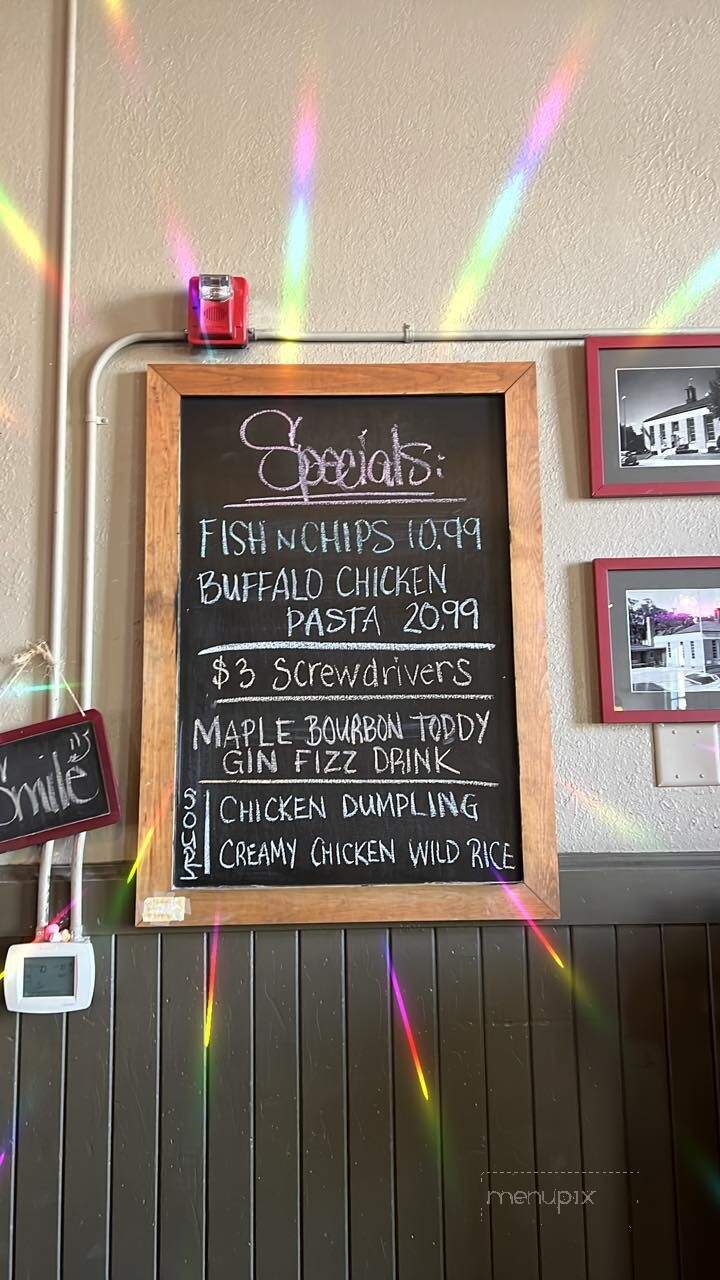 Specials:
FISH N CHIPS 10.99
BUFFALO CHICKEN
PASTA 20.99
$3 Screwdrivers
MAPLE BOURBON TODDY
GIN FIZZ DRINK
SOUPS
CHICKEN DUMPLING
CREAMY CHICKEN WILD RICE
smile
menupix